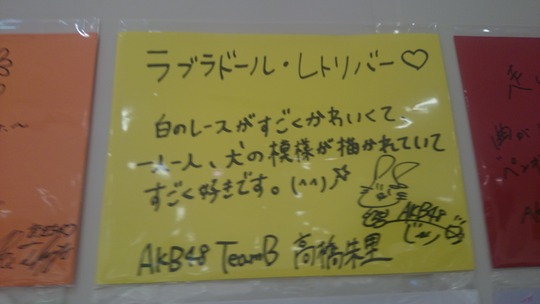 ラブラドール・レトリバー♡
白のレースがすごくかわいくて、
一人一人、犬の模様が描かれていて
すごく好きです。(^^)☆
AKB48
AKB48 TeamB 高橋朱里